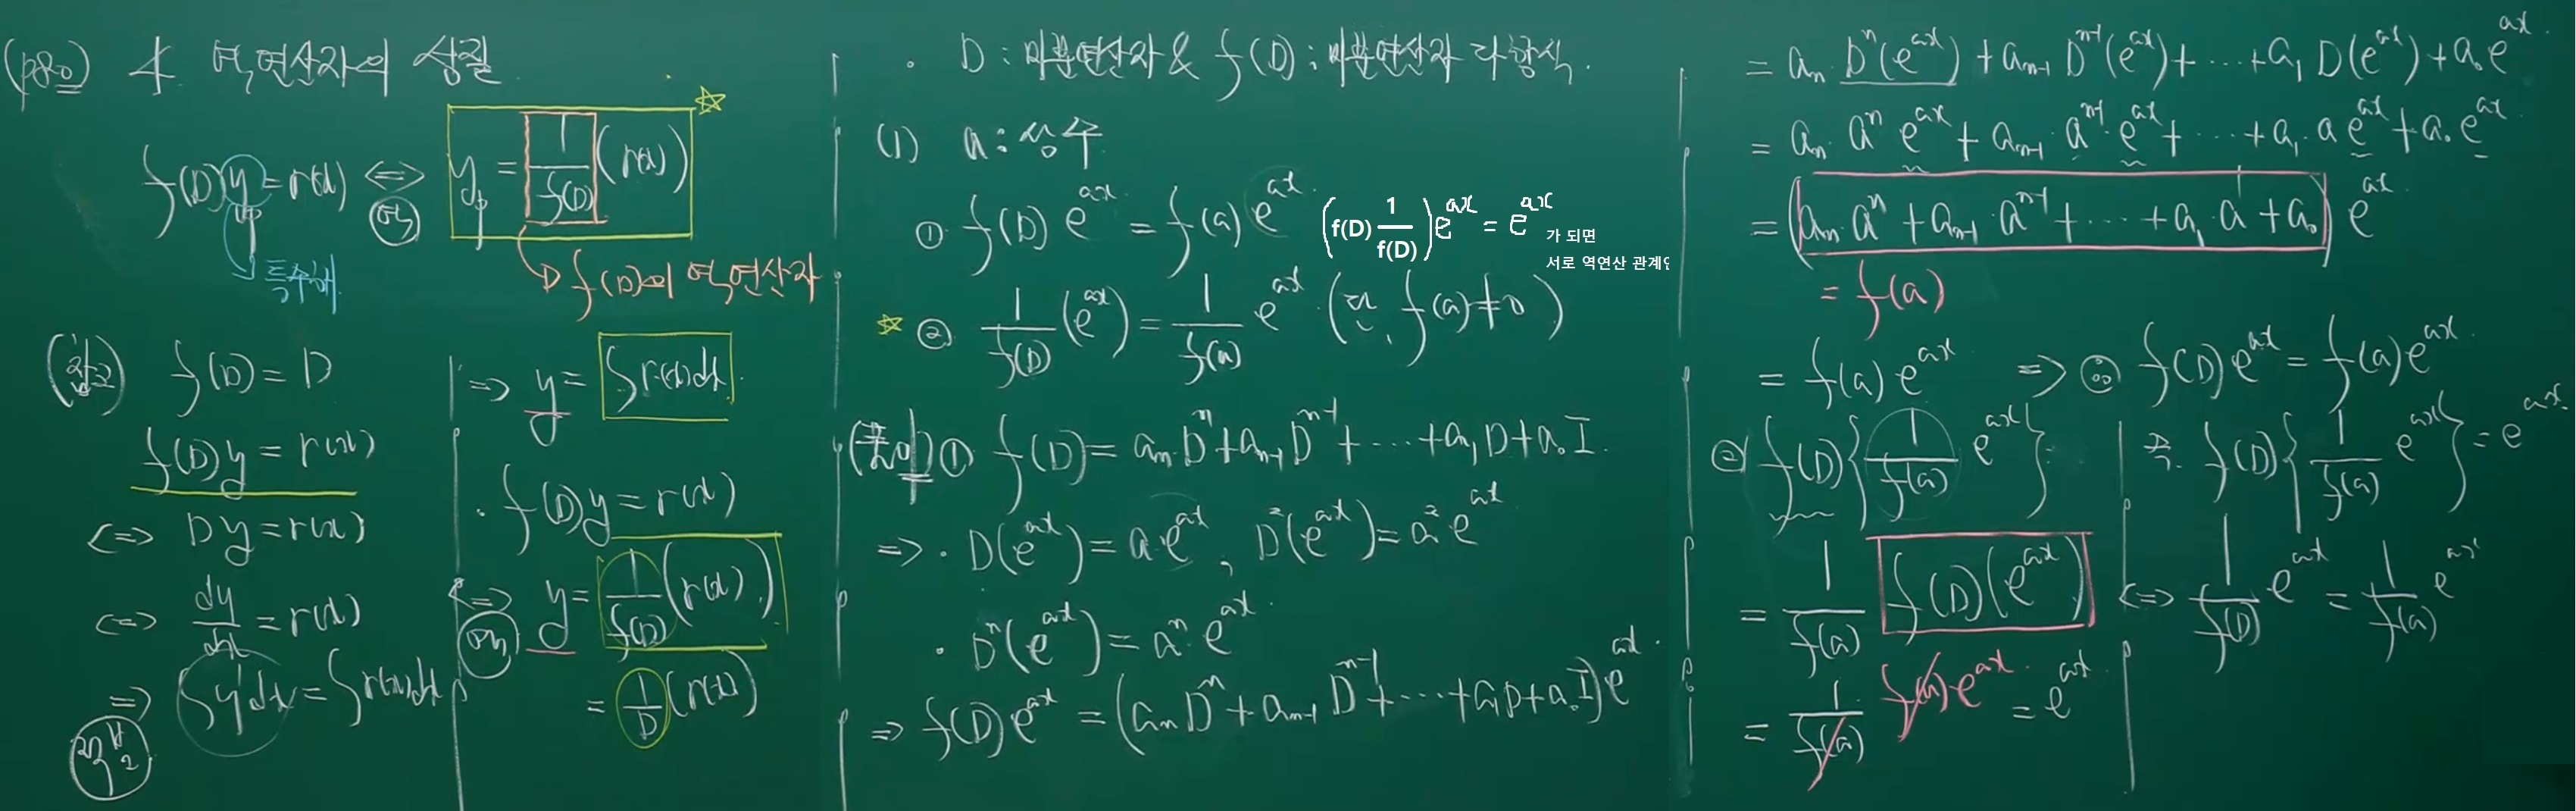 (p80) 4. 역연산자의 성질
f(D)y = r(x) ⇔ y_p = 1/f(D) (r(x)) ☆
y_p
정의
특수해
f(D)의 역연산자
(참고) f(D) = D
f(D)y = r(x)
⇔ Dy = r(x)
⇔ dy/dx = r(x)
⇒ ∫y'dx = ∫r(x)dx
⇒ y = ∫r(x)dx.
· f(D)y = r(x)
⇔ y = 1/f(D) (r(x))
정의
= 1/D (r(x))
· D : 미분연산자 & f(D) : 미분연산자 다항식.
(1) a : 상수
① f(D) e^{ax} = f(a) e^{ax}.
(f(D) 1/f(D)) e^{ax} = e^{ax} 가 되면
서로 역연산 관계인
☆ ② 1/f(D) (e^{ax}) = 1/f(a) e^{ax}. (단, f(a) ≠ 0)
(풀이) ① f(D) = a_n D^n + a_{n-1} D^{n-1} + ··· + a_1 D + a_0 I.
⇒ · D(e^{ax}) = a·e^{ax}, D²(e^{ax}) = a² e^{ax}
· D^n(e^{ax}) = a^n e^{ax}.
⇒ f(D)e^{ax} = (a_n D^n + a_{n-1} D^{n-1} + ··· + a_1 D + a_0 I) e^{ax}.
= a_n D^n(e^{ax}) + a_{n-1} D^{n-1}(e^{ax}) + ··· + a_1 D(e^{ax}) + a_0 e^{ax}.
= a_n · a^n e^{ax} + a_{n-1} · a^{n-1} · e^{ax} + ··· + a_1 · a e^{ax} + a_0 e^{ax}.
= (a_n · a^n + a_{n-1} · a^{n-1} + ··· + a_1 · a + a_0) e^{ax}.
= f(a)
= f(a) e^{ax} ⇒ ∴ f(D) e^{ax} = f(a) e^{ax}.
② f(D) { 1/f(a) e^{ax} }
= 1/f(a) f(D)(e^{ax})
= 1/f(a) f(a)·e^{ax}. = e^{ax}.
즉. f(D) { 1/f(a) e^{ax} } = e^{ax}
⇔ 1/f(D) e^{ax} = 1/f(a) e^{ax}